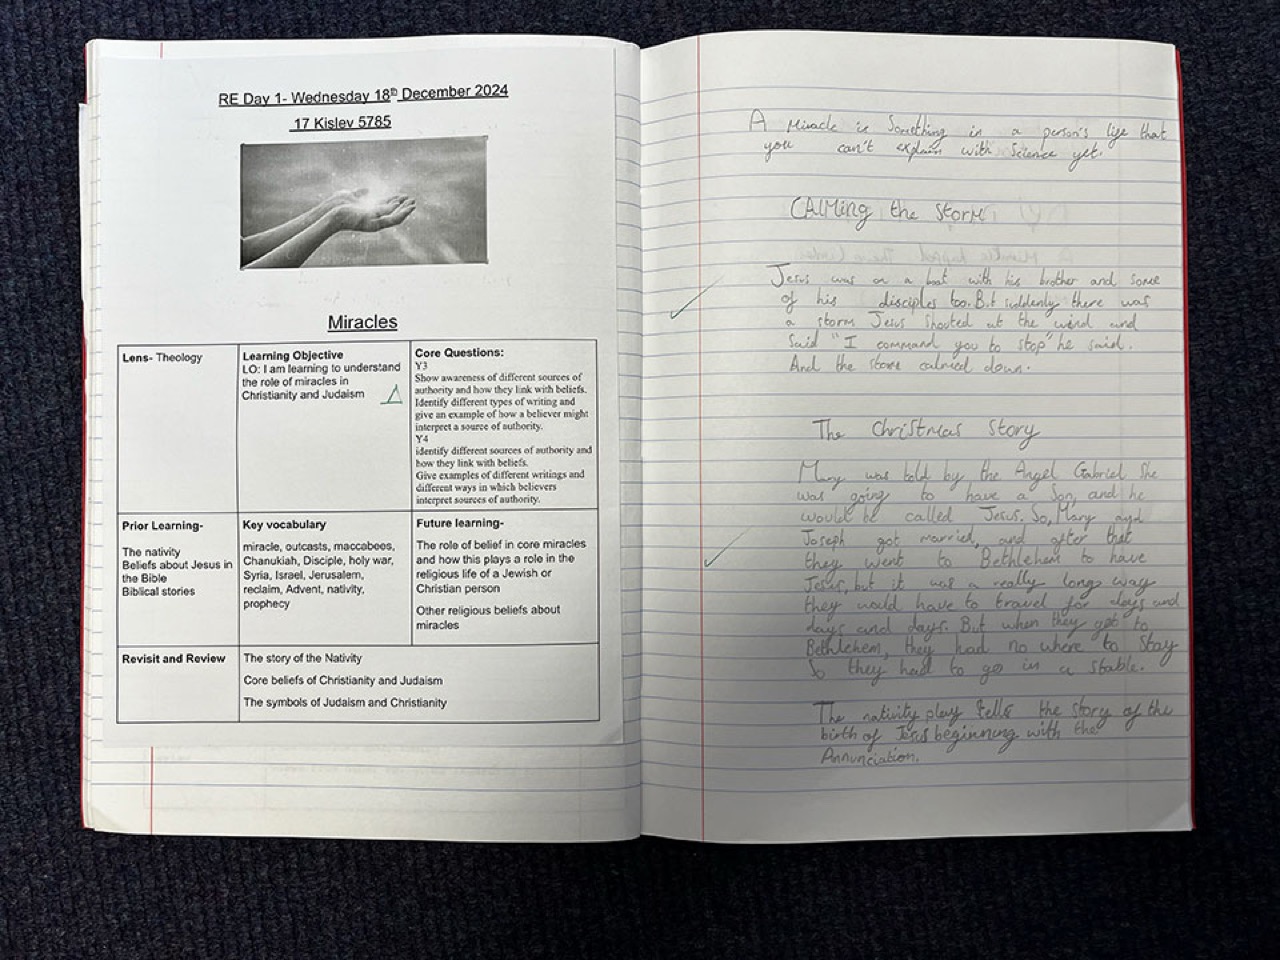 RE Day 1- Wednesday 18th December 2024
17 Kislev 5785
Miracles
Lens- Theology
Learning Objective
LO: I am learning to understand
the role of miracles in
Christianity and Judaism
Core Questions:
Y3
Show awareness of different sources of
authority and how they link with beliefs.
Identify different types of writing and
give an example of how a believer might
interpret a source of authority.
Y4
identify different sources of authority and
how they link with beliefs.
Give examples of different writings and
different ways in which believers
interpret sources of authority.
Prior Learning-
The nativity
Beliefs about Jesus in
the Bible
Biblical stories
Key vocabulary
miracle, outcasts, maccabees,
Chanukiah, Disciple, holy war,
Syria, Israel, Jerusalem,
reclaim, Advent, nativity,
prophecy
Future learning-
The role of belief in core miracles
and how this plays a role in the
religious life of a Jewish or
Christian person
Other religious beliefs about
miracles
Revisit and Review
The story of the Nativity
Core beliefs of Christianity and Judaism
The symbols of Judaism and Christianity
A Miracle is Something in a person's life that
you can't explain with Science yet.
CAlMing the StorM
Jesus was on a boat with his brother and some
of his disciples too. But suddenly there was
a storm Jesus shouted at the wind and
Said "I command you to stop" he said.
And the storm calmed down.
The Christmas Story
Mary was told by the Angel Gabriel She
was going to have a Son, and he
would be called Jesus. So, Mary and
Joseph got married, and after that
they went to Bethlehem to have
Jesus, but it was a really long way
they would have to travel for days and
days and days. But when they got to
Bethlehem, they had no where to Stay
So they had to go in a stable.
The nativity play tells the story of the
birth of Jesus beginning with the
Annunciation.